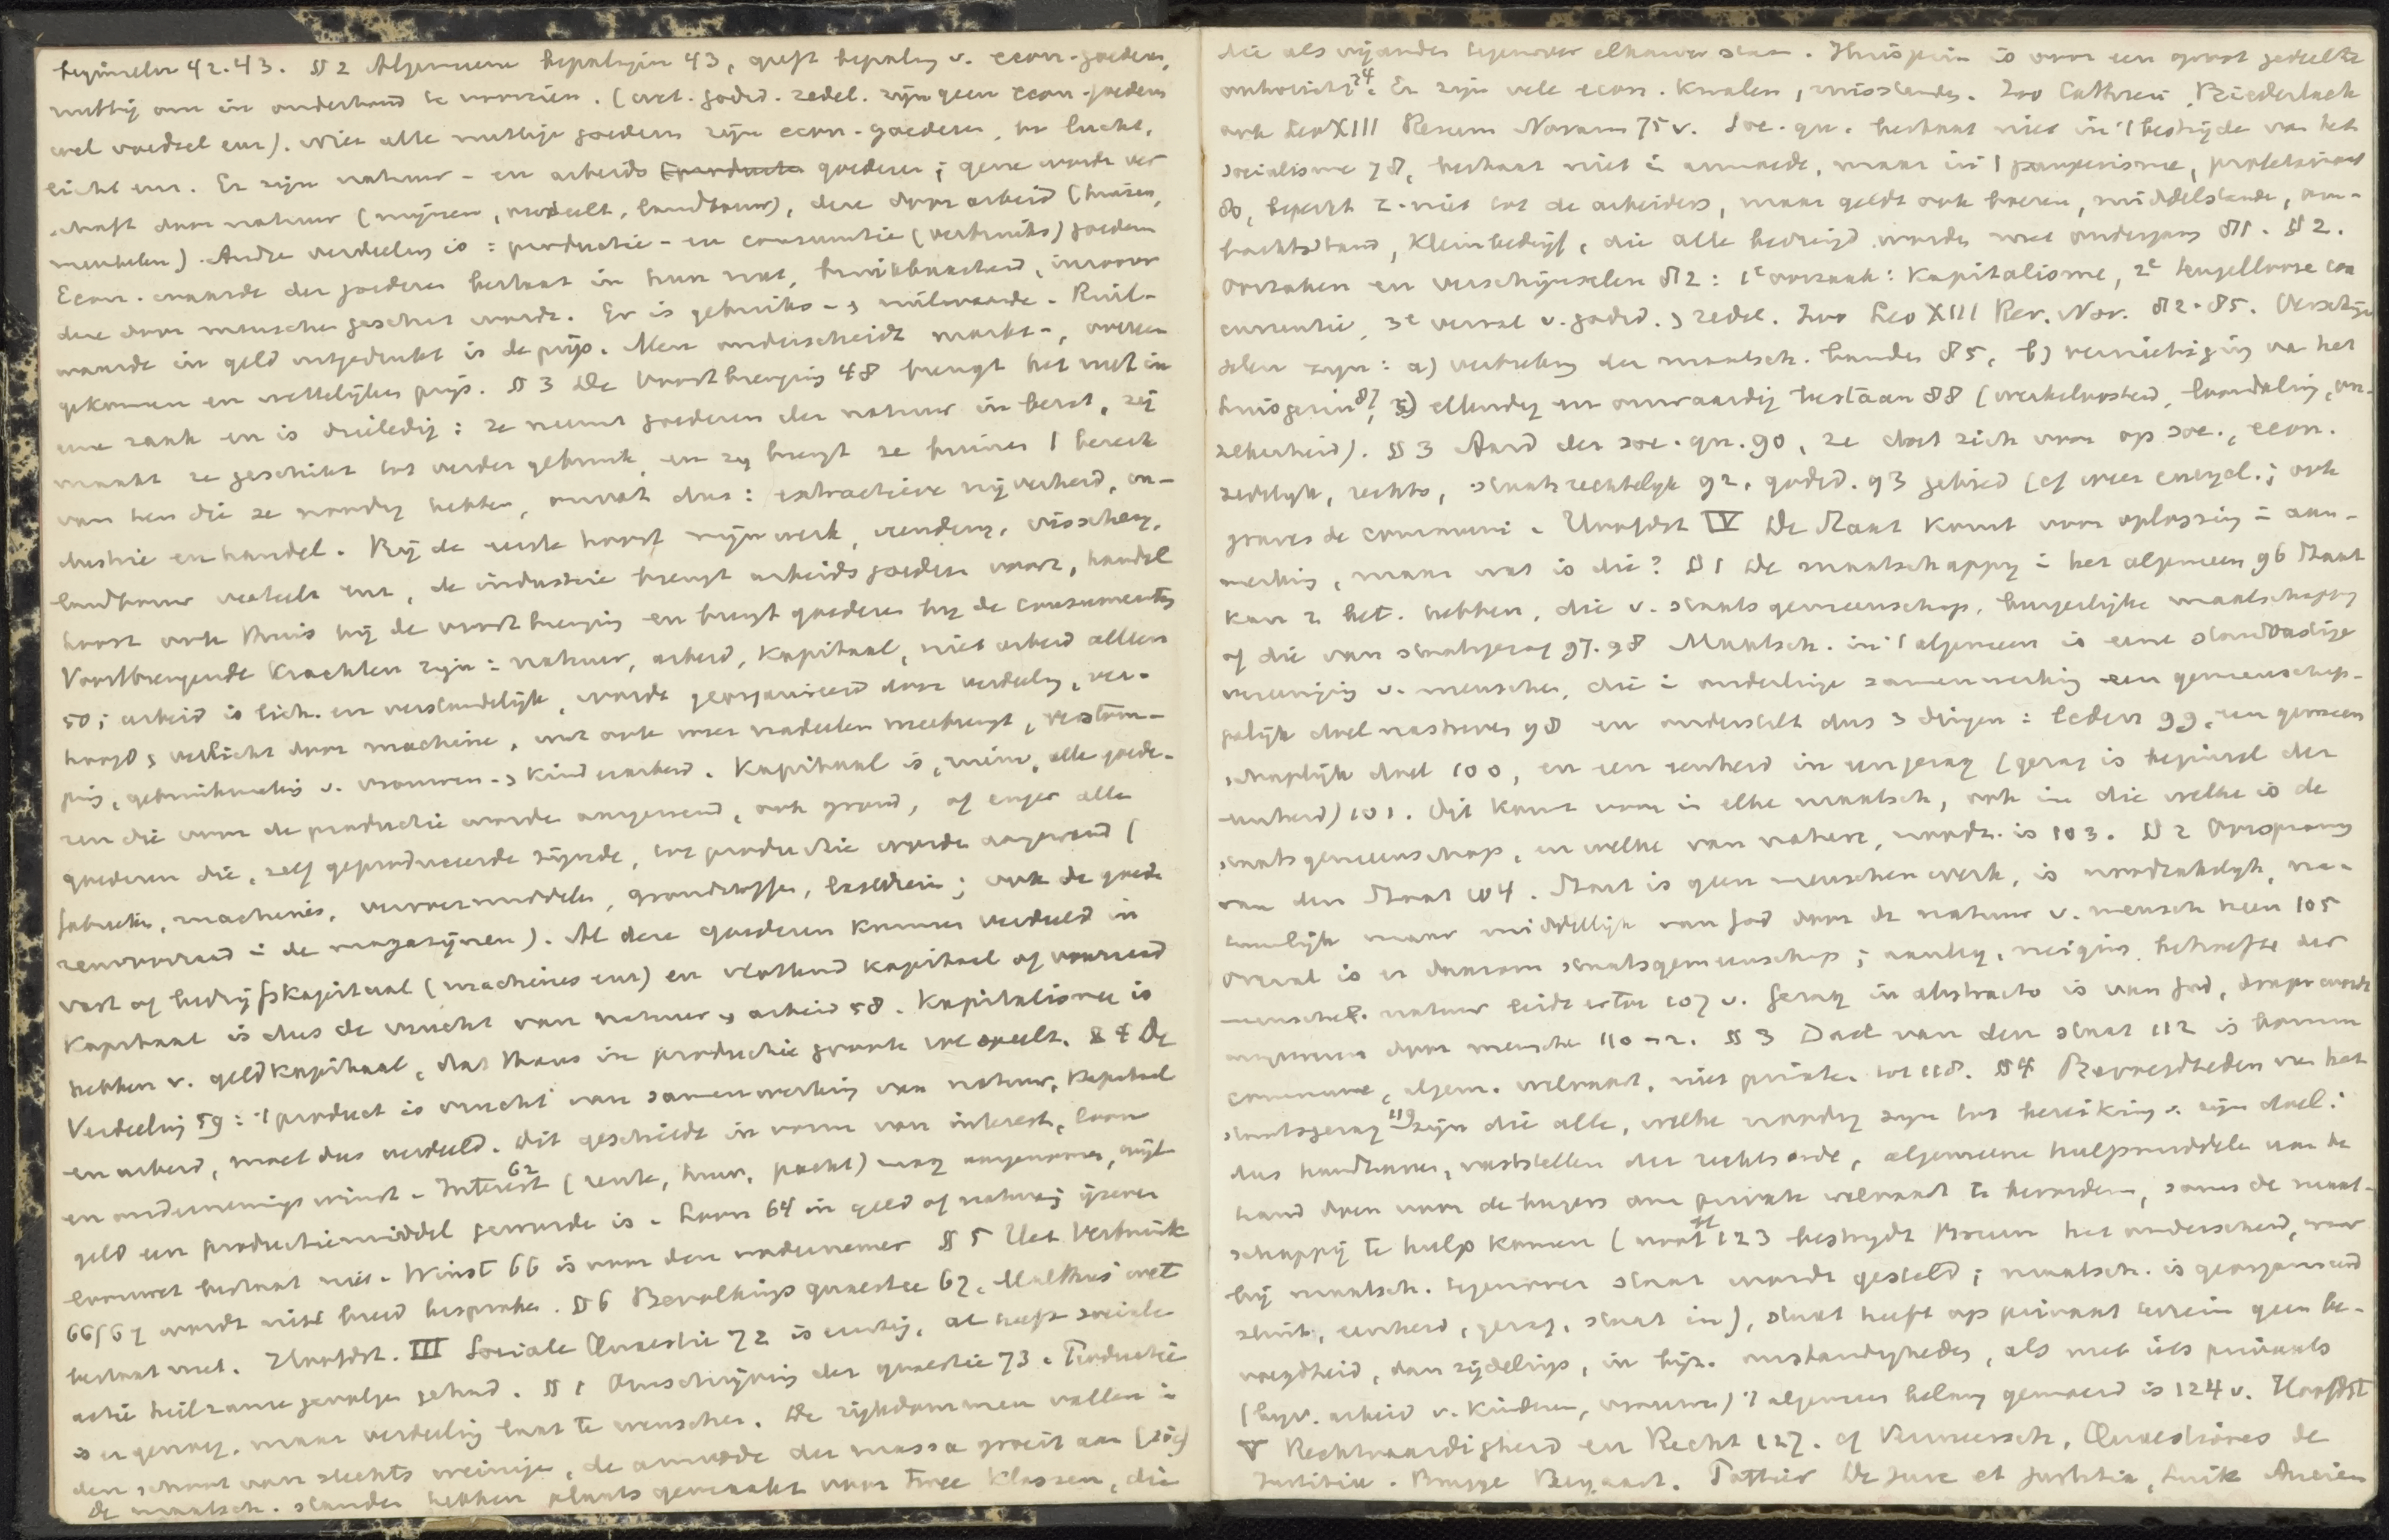 beginselen 42.43. § 2 Algemeene bepalingen 43, geeft bepaling v. econ. goederen,
nuttig om in onderhoud te voorzien. (wet. godsd. zedel. zijn geen econ. goederen
wel voedsel enz). Niet alle nuttige goederen zijn econ. goederen, bv lucht,
licht enz. Er zijn natuur- en arbeids goederen; gene worde ver
schaft door natuur (mijnen, landbouw), deze door arbeid (huizen,
meubelen). Andre verdeeling is: productie- en consumtie (verbruiks) goedern
Econ. waarde der goederen bestaat in hun nut, bruikbaarheid, inzoover
deze door menschen geschat wordt. Er is gebruiks- & ruilwaarde. Ruil-
waarde in geld uitgedrukt is de prijs. Men onderscheidt markt-, overeen
gekomen en wettelijken prijs. § 3 De Voortbrenging 48 brengt het nut in
eene zaak en is drieledig: ze neemt goederen der natuur in bezit, zij
maakt ze geschikt tot verder gebruik, en zij brengt ze binnen 't bereik
van hen die ze noodig hebben, omvat dus: extractieve nijverheid, in-
dustrie en handel. Bij de eerste hoort mijnwerk, visscherij,
landbouw veeteelt enz, de industrie brengt arbeidsgoederen voort, handel
hoort ook thuis bij de voortbrenging en brengt goederen bij de consumenten
Voortbrengende krachten zijn: natuur, arbeid, kapitaal, niet arbeid alleen
50; arbeid is lich. en verstandelijk, wordt georganiseerd door verdeeling, ver-
hoogd & verlicht door machine, wat ook weer nadeelen meebrengt,
ping, gebruikmaking v. vrouwen- & kinderarbeid. Kapitaal is, ruim, alle goede-
ren die voor de productie worde aangewend, ook grond, of enger alle
goederen die, zelf geproduceerde zijnde, tot productie worde aangewend (
fabrieken, machines, vervoermiddelen, grondstoffen, ; ook de goede
renvoorraad in de magazijnen). Al deze goederen kunnen verdeeld in
vast of bedrijfskapitaal (machines enz) en vlottend kapitaal of voorraad
Kapitaal is dus de vrucht van natuur & arbeid 58. Kapitalisme is
hebben v. geldkapitaal, dat thans in productie groote rol speelt. § 4 De
Verdeeling 59: 't product is vrucht van samenwerking van natuur, kapitaal
en arbeid, moet dus verdeeld. Dit geschiedt in vorm van interest, loon
en ondernemingswinst. Interest 62 (rente, huur, pacht) mag aangenomen, wijl
geld een productiemiddel geworde is. Loon 64 in geld of natura; ijzeren
loonwet bestaat niet. Winst 66 is voor den ondernemer § 5 Het Verbruik
66/67 wordt niet breed besproken. § 6 Bevolkings quaestie 67, Malthus' wet
bestaat niet. Hoofdst. III Sociale Quaestie 72 is eenig, al heeft sociale
actie heilzame gevolgen gehad. § 1 Omschrijving der quaestie 73. Productie
is er genoeg, maar verdeeling laat te wenschen. De rijkdommen vallen in
den schoot van slechts weinige, de armoede der massa groeit aan
De maatsch. standen hebben plaats gemaakt voor twee klassen, die
die als vijanden tegenover elkander staan. Huisgezin is voor een groot gedeelte
ontwricht 74. Er zijn vele econ. kwalen, misstanden. Zoo Cathrein, Biederlack
ook Leo XIII Rerum Novarum 75 v. Soc. qu. bestaat niet in 't bestrijde van het
socialisme 78, bestaat niet in armoede, maar in 't pauperisme, proletariaat
80, beperkt z. niet tot de arbeiders, maar geldt ook boeren, middelstande, am-
bachtsstand, kleinbedrijf, die alle bedreigd worden met ondergang 81. § 2.
Oorzaken en verschijnselen 82: 1e oorzaak: Kapitalisme, 2e teugellooze con
currentie, 3e verval v. godsd. & zedel. Zoo Leo XIII Rer. Nov. 82-85. Verschijn
selen zijn: a) verbreking der maatsch. banden 85, b) vernietiging van het
huisgezin 87, c) ellendig en onwaardig bestaan 88 (werkeloosheid, on-
zekerheid). § 3 Aard der soc. qu. 90, ze doet zich voor op soc., econ.
zedelijk, rechts, staatsrechtelijk 92, godsd. 93 gebied (cf weer encycl.; ook
graves de communi. Hoofdst IV De Staat komt voor oplossing in aan-
merking, maar wat is die? § 1 De maatschappij in het algemeen 96 Staat
kan 2 bet. hebben, die v. staatsgemeenschap, burgerlijke maatschappij
of die van staatsgezag 97. 98 Maatsch. in 't algemeen is eene standvastige
vereeniging v. menschen, die in onderlinge samenwerking een gemeenschap-
pelijk doel nastreven 98 en onderstelt dus 3 dingen: leden 99, een gemeen
schappelijk doel 100, en een eenheid in een gezag (gezag is beginsel der
eenheid) 101. Dit komt voor in elke maatsch, ook in die welke is de
staatsgemeenschap, en welke van nature, noodz. is 103. § 2 Oorsprong
van den Staat 104. Staat is geen menschen werk, is noodzakelijk, na-
tuurlijk maar middellijk van God door de natuur v. mensch heen 105
Overal is er daarom staatsgemeenschap; aanleg, neiging, behoefte der
menschel. natuur leidt ertoe 107 v. Gezag in abstracto is van God,
door mensche 110-12. § 3 Doel van den staat 112 is bonum
commune, algem. welvaart, niet private tot 118. § 4 Bevoegdheden van het
staatsgezag 119 zijn die alle, welke noodig zijn tot bereiking v. zijn doel:
dus handhaven, vaststellen der rechtsorde, algemeene hulpmiddelen aan de
hand doen voor de burgers om private welvaart te bevorderen, soms de maat-
schappij te hulp komen (noot 123 bestrijdt Bruin het onderscheid, waar
bij maatsch. tegenover staat wordt gesteld; maatsch. is georganiseerd
sluit, eenheid, gezag, staat in), staat heeft op privaat terrein geen be-
voegdheid, dan zijdelings, in bijz. omstandigheden, als met iets privaats
(bijv. arbeid v. kinderen, vrouwen) 't algemeen belang gemoeid is 124 v. Hoofdst
V Rechtvaardigheid en Recht 127. cf Vermeersch, Quaestiones de
Justitia. Brugge Beyaert. De Jure et Justitia, Luik